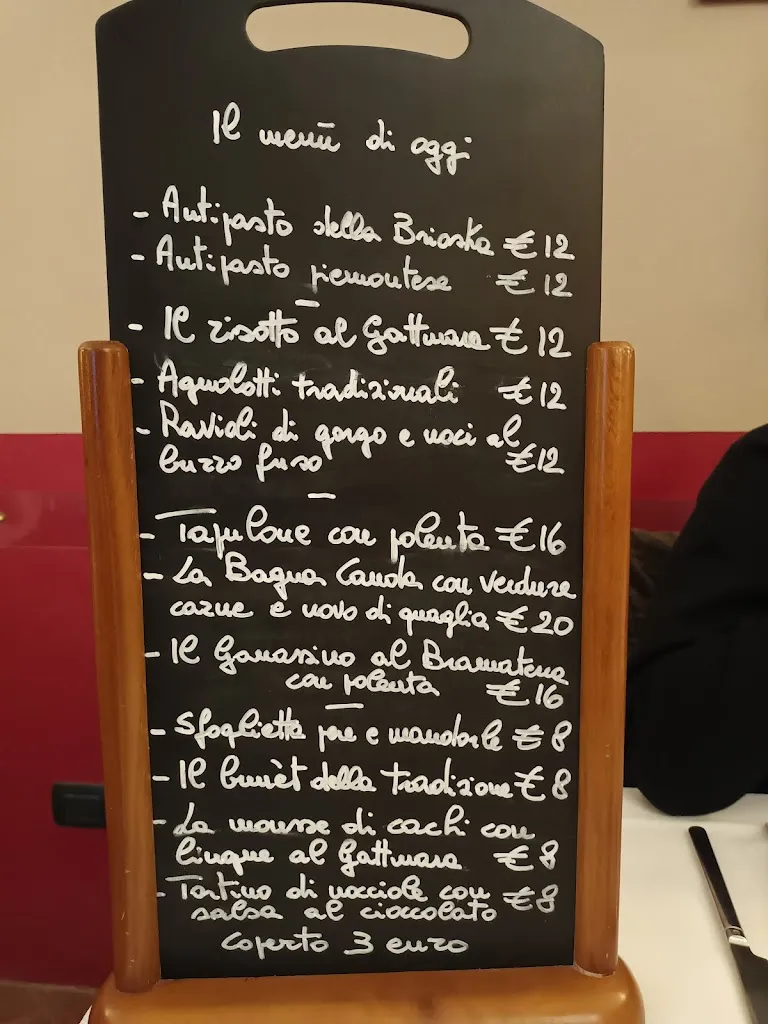 Il menù di oggi
- Antipasto della Brioska € 12
- Antipasto piemontese € 12
- Il risotto al Gattinara € 12
- Agnolotti tradizionali € 12
- Ravioli di gorgo e noci al
burro fuso € 12
- Tapulone con polenta € 16
- La Bagna Cauda con verdure
carne e uovo di quaglia € 20
- Il Ganassino al Bramaterra
con polenta € 16
- Sfoglietta pere e mandorle € 8
- Il bunèt della tradizione € 8
- La mousse di cachi con
lingue al Gattinara € 8
- Tortino di nocciole con € 8
salsa al cioccolato
Coperto 3 euro